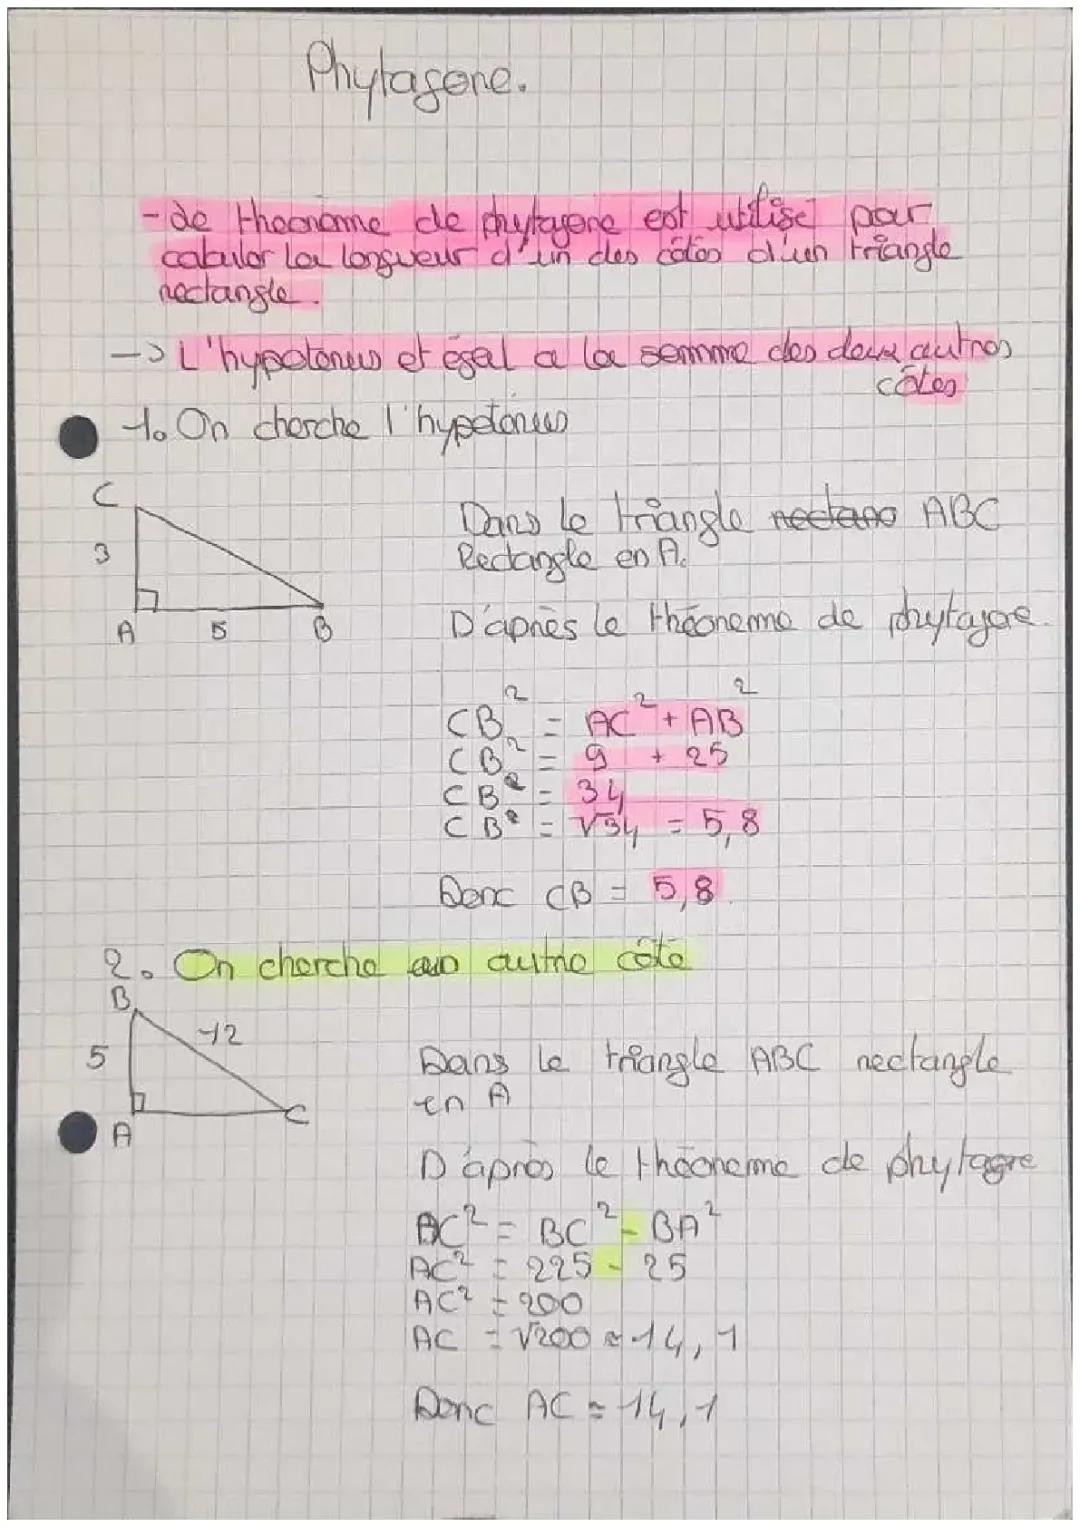 Phytagore.
- Le theoreme de phytagore est utilisé pour
calculer la longueur d'un des côtés d'un triangle
rectangle.
-> L'hypotenus et égal a la somme des deux autres
côtes
1. On cherche l'hypoténus
C
3
A 5 B
Dans le triangle ABC
Rectangle en A.
D'après le théoreme de phytagore.
CB² = AC² + AB²
CB² = 9 + 25
CB² = 34
CB² = √34 = 5,8
Donc CB = 5,8
2. On cherche autre côté
B
12
5
A C
Dans le triangle ABC rectangle
en A
D'après le théoreme de phytagre
AC² = BC² - BA²
AC² = 225 - 25
AC² = 200
AC = √200 ≈ 14,1
Donc AC ≈ 14,1